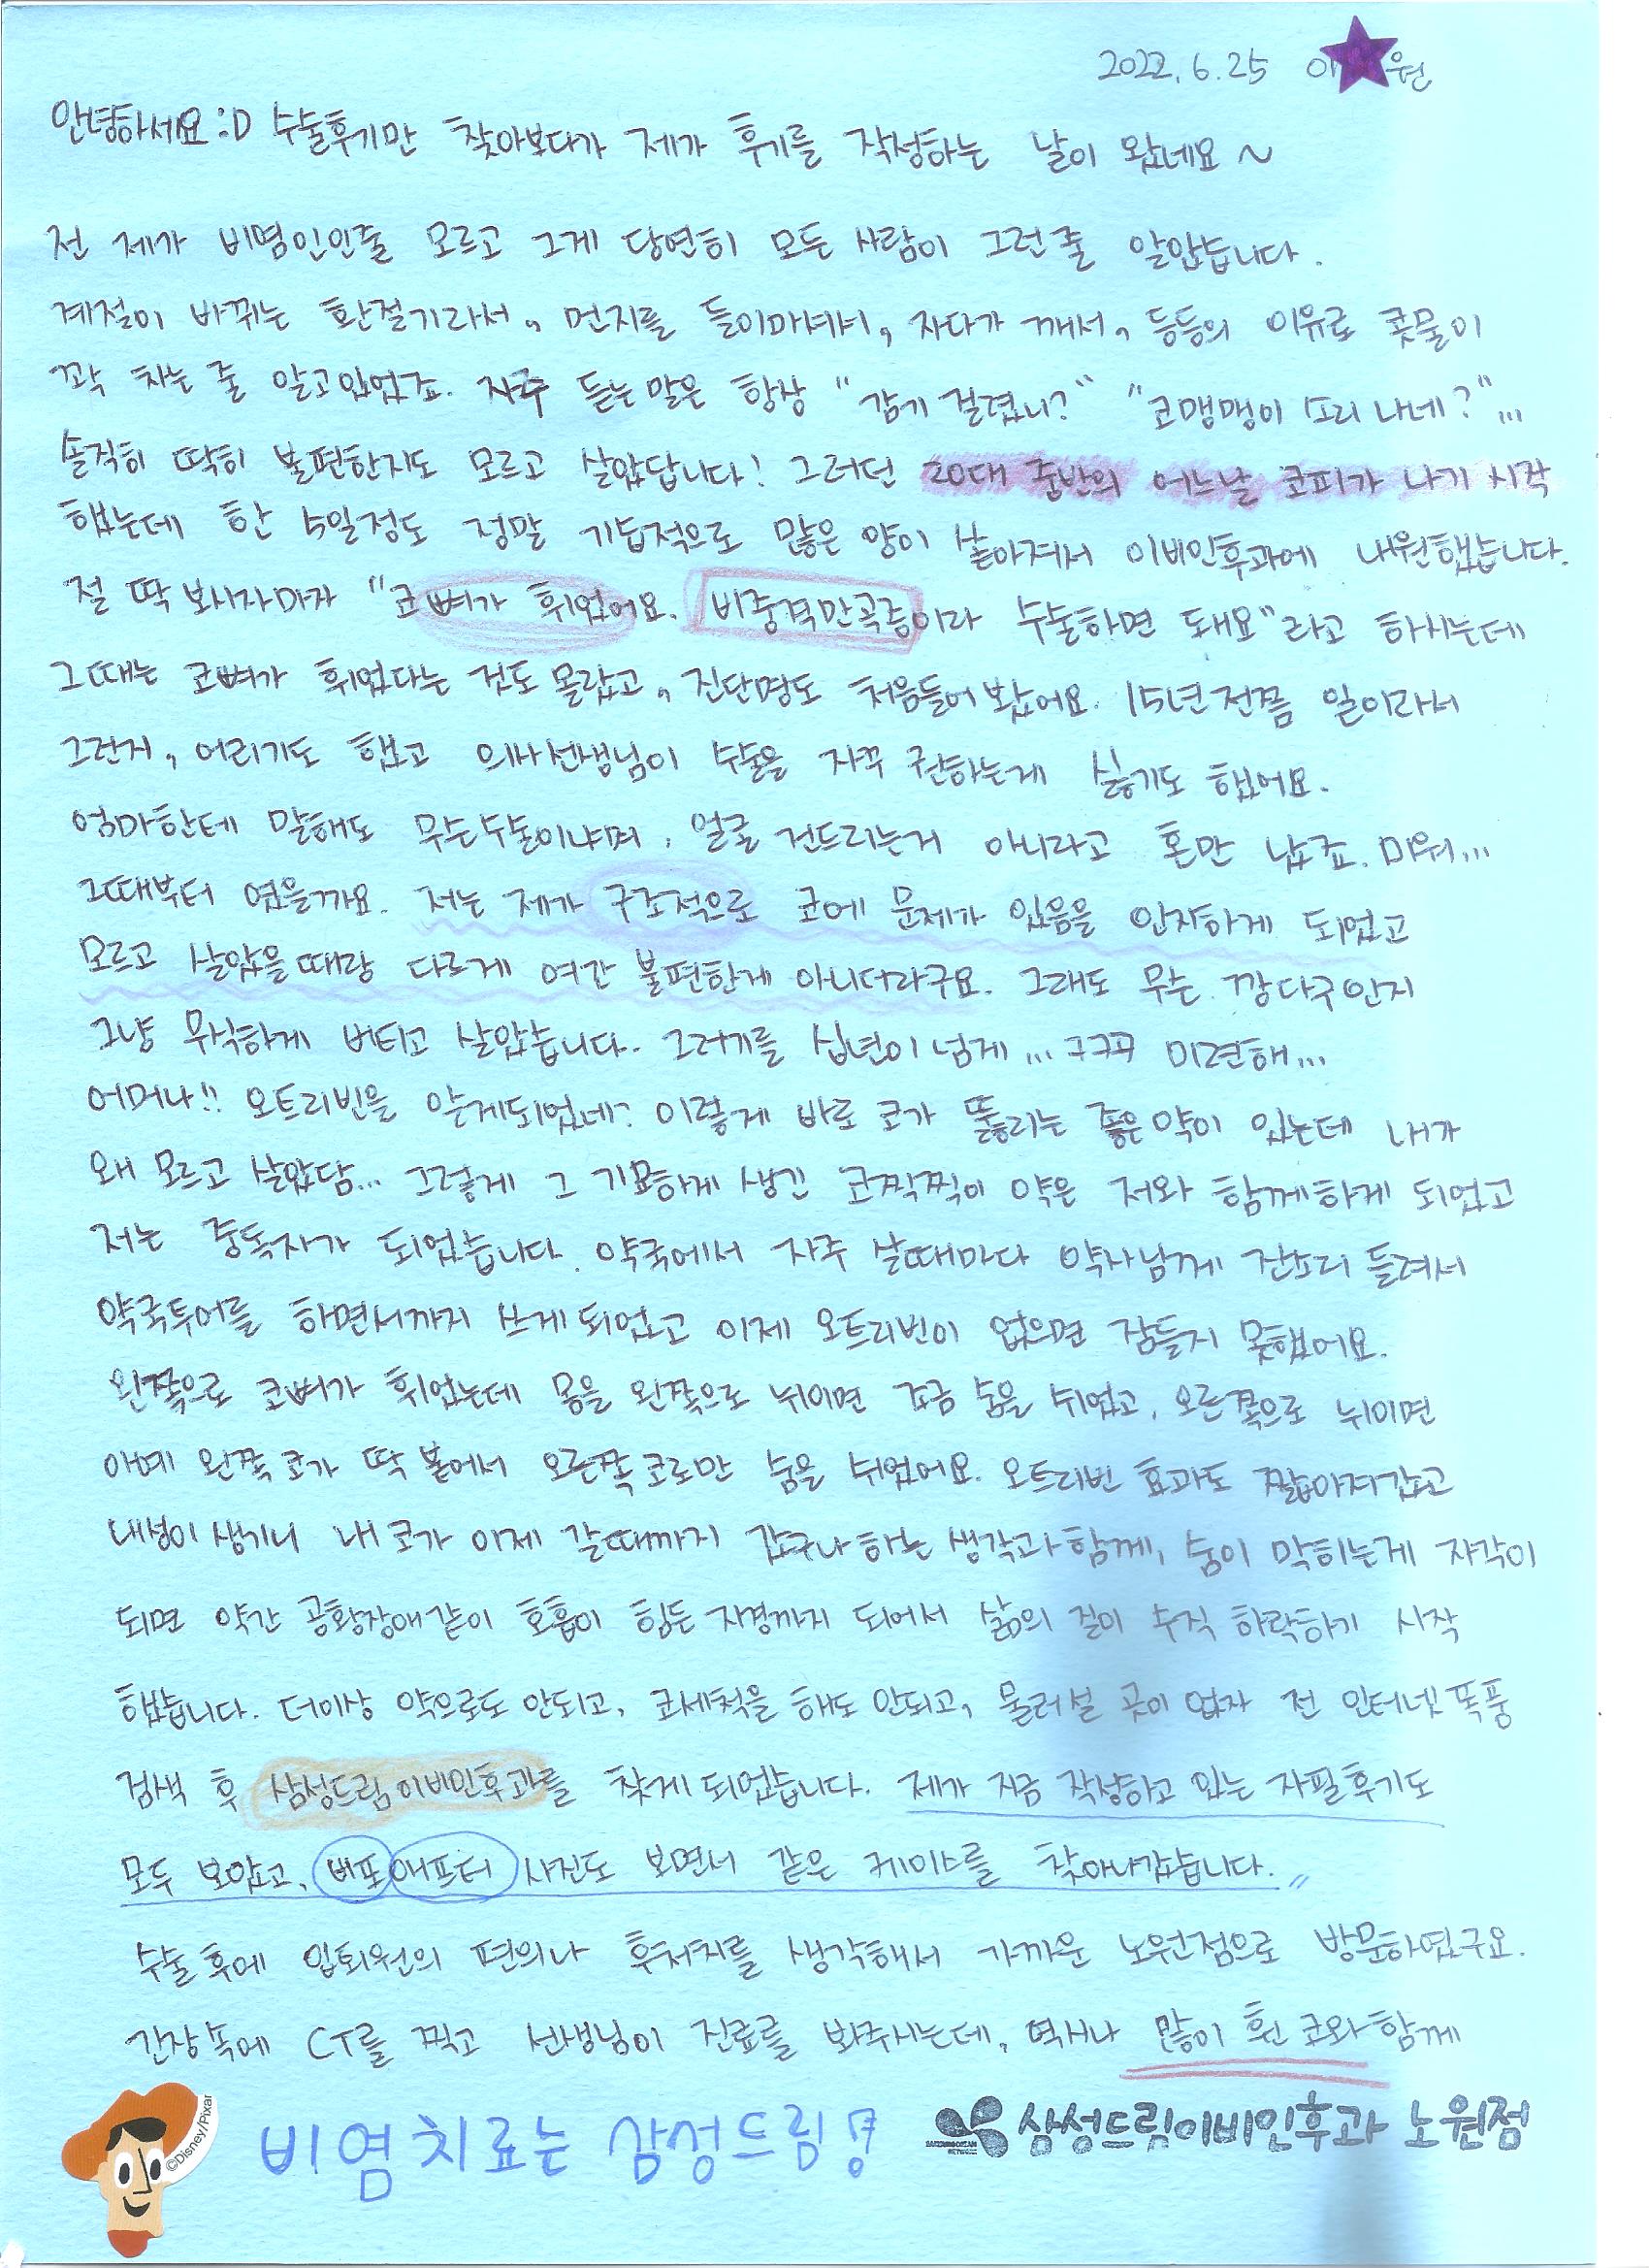 2022. 6. 25 이 원
안녕하세요 :D 수술후기만 찾아보다가 제가 후기를 작성하는 날이 왔네요 ~
전 제가 비염인인줄 모르고 그게 당연히 모든 사람이 그런줄 알았습니다.
계절이 바뀌는 환절기라서, 먼지를 들이마셔서, 자다가 깨서, 등등의 이유로 콧물이
꽉 차는 줄 알고있었죠. 자주 듣는말은 항상 "감기 걸렸니?" "코맹맹이 소리 나네?"...
솔직히 딱히 불편한지도 모르고 살았답니다! 그러던 20대 중반의 어느날 코피가 나기 시작
했는데 한 5일정도 정말 기듭적으로 많은 양이 쏟아져서 이비인후과에 내원했습니다.
절 딱 보시자마자 "코뼈가 휘었어요. 비중격만곡증이라 수술하면 돼요"라고 하시는데
그때는 코뼈가 휘었다는 것도 몰랐고, 진단명도 처음들어 봤어요. 15년전쯤 일이라서
그런지, 어리기도 했고 의사선생님이 수술을 자꾸 권하는게 싫기도 했어요.
엄마한테 말해도 무슨수술이냐며, 얼굴 건드리는거 아니라고 혼만 났죠. 미워...
그때부터 였을까요. 저는 제가 구조적으로 코에 문제가 있음을 인지하게 되었고
모르고 살았을때랑 다르게 여간 불편한게 아니더라구요. 그래도 무슨 깡다구인지
그냥 무식하게 버티고 살았습니다. 그러기를 십년이 넘게... ㅋㅋㅋ 미련해...
어머나!! 오트리빈을 알게되었네? 이렇게 바로 코가 뚫리는 좋은약이 있는데 내가
왜 모르고 살았담... 그렇게 그 기묘하게 생긴 코찍찍이 약은 저와 함께하게 되었고
저는 중독자가 되었습니다. 약국에서 자주 살때마다 약사님께 잔소리 들려서
약국투어를 하면서까지 쓰게되었고 이제 오트리빈이 없으면 잠들지 못했어요.
왼쪽으로 코뼈가 휘었는데 몸을 왼쪽으로 뉘이면 조금 숨을 쉬었고, 오른쪽으로 뉘이면
아예 왼쪽 코가 딱 붙어서 오른쪽 코로만 숨을 쉬었어요. 오트리빈 효과도 짧아져갔고
내성이 생기니 내 코가 이제 갈때까지 갔구나 하는 생각과 함께, 숨이 막히는게 자각이
되면 약간 공황장애같이 호흡이 힘든 지경까지 되어서 삶의 질이 수직 하락하기 시작
했습니다. 더이상 약으로도 안되고, 코세척을 해도 안되고, 물러설 곳이 없자 전 인터넷 폭풍
검색 후 삼성드림이비인후과를 찾게 되었습니다. 제가 지금 작성하고 있는 자필후기도
모두 보았고, 비포애프터 사진도 보면서 같은 케이스를 찾아나갔습니다.
수술 후에 입퇴원의 편의나 후처치를 생각해서 가까운 노원점으로 방문하였구요.
긴장속에 CT를 찍고 선생님이 진료를 봐주시는데, 역시나 많이 휜 코와 함께
©Disney/Pixar
비염치료는 삼성드림!
삼성드림이비인후과 노원점